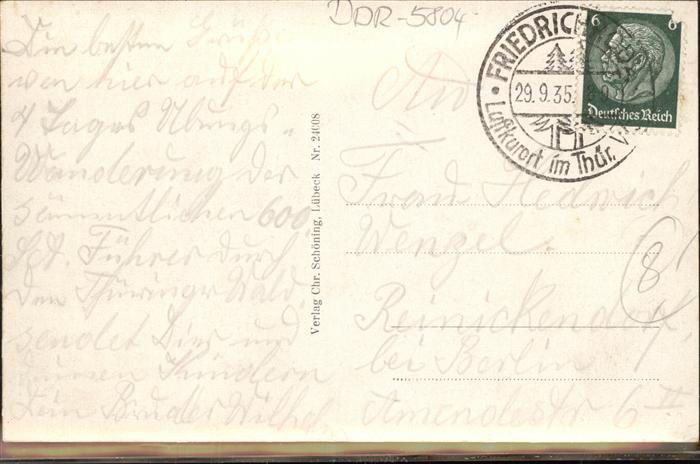 DDR-5804
Die besten Grüße
von hier auf der
4 Tages Übungs-
Wanderung der
sämmtlicher 600
Führer durch
den Thüringer Wald
sendet Dir und
Kindern
Dein Bruder Wilhel
Verlag Chr. Schöning, Lübeck Nr. 24608
FRIEDRICH
29.9.35
Luftkurort im Thür. W
6 6
Deutsches Reich
An
Frau Heinrich
Wenzel
Reinickendorf
bei Berlin
Amendestr 6 II
8